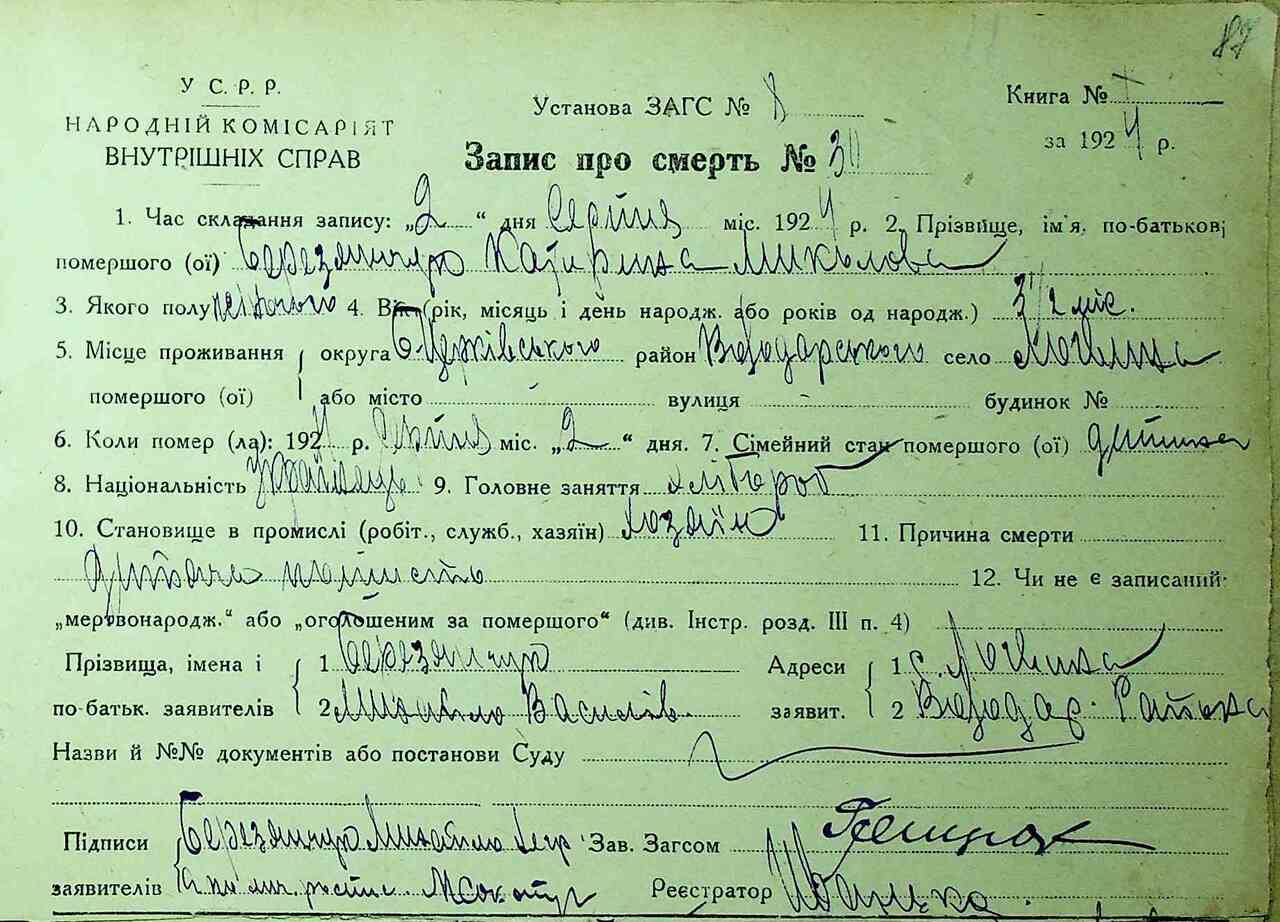 87
У С. Р. Р.
НАРОДНІЙ КОМІСАРІЯТ
ВНУТРІШНІХ СПРАВ
Установа ЗАГС № 8
Книга №
за 1924 р.
Запис про смерть № 30
1. Час складання запису: „2“ дня Серпня міс. 1924 р. 2. Прізвище, ім'я, по-батькові
помершого (ої) Березанчук Катирина Миколова
3. Якого полу жіночого 4. Вік (рік, місяць і день народж. або років од народж.) 3 1/2 міс.
5. Місце проживання округа Б Церківського район Володарського село Логвина
помершого (ої) або місто вулиця будинок №
6. Коли помер (ла): 1924 р. Серпня міс. „2“ дня. 7. Сімейний стан помершого (ої) дитина
8. Національність 9. Головне заняття хлібороб
10. Становище в промислі (робіт., служб., хазяїн) хазяїн 11. Причина смерти
12. Чи не є записаний:
„мертвонародж.“ або „оголошеним за помершого“ (див. Інстр. розд. III п. 4)
Прізвища, імена і 1 Березанчук Адреси 1 с. Логвина
по-батьк. заявителів 2 Михайло Василів заявит. 2 Володар. Района
Назви й №№ документів або постанови Суду
Підписи Березанчук Михайло Зав. Загсом
заявителів Реєстратор